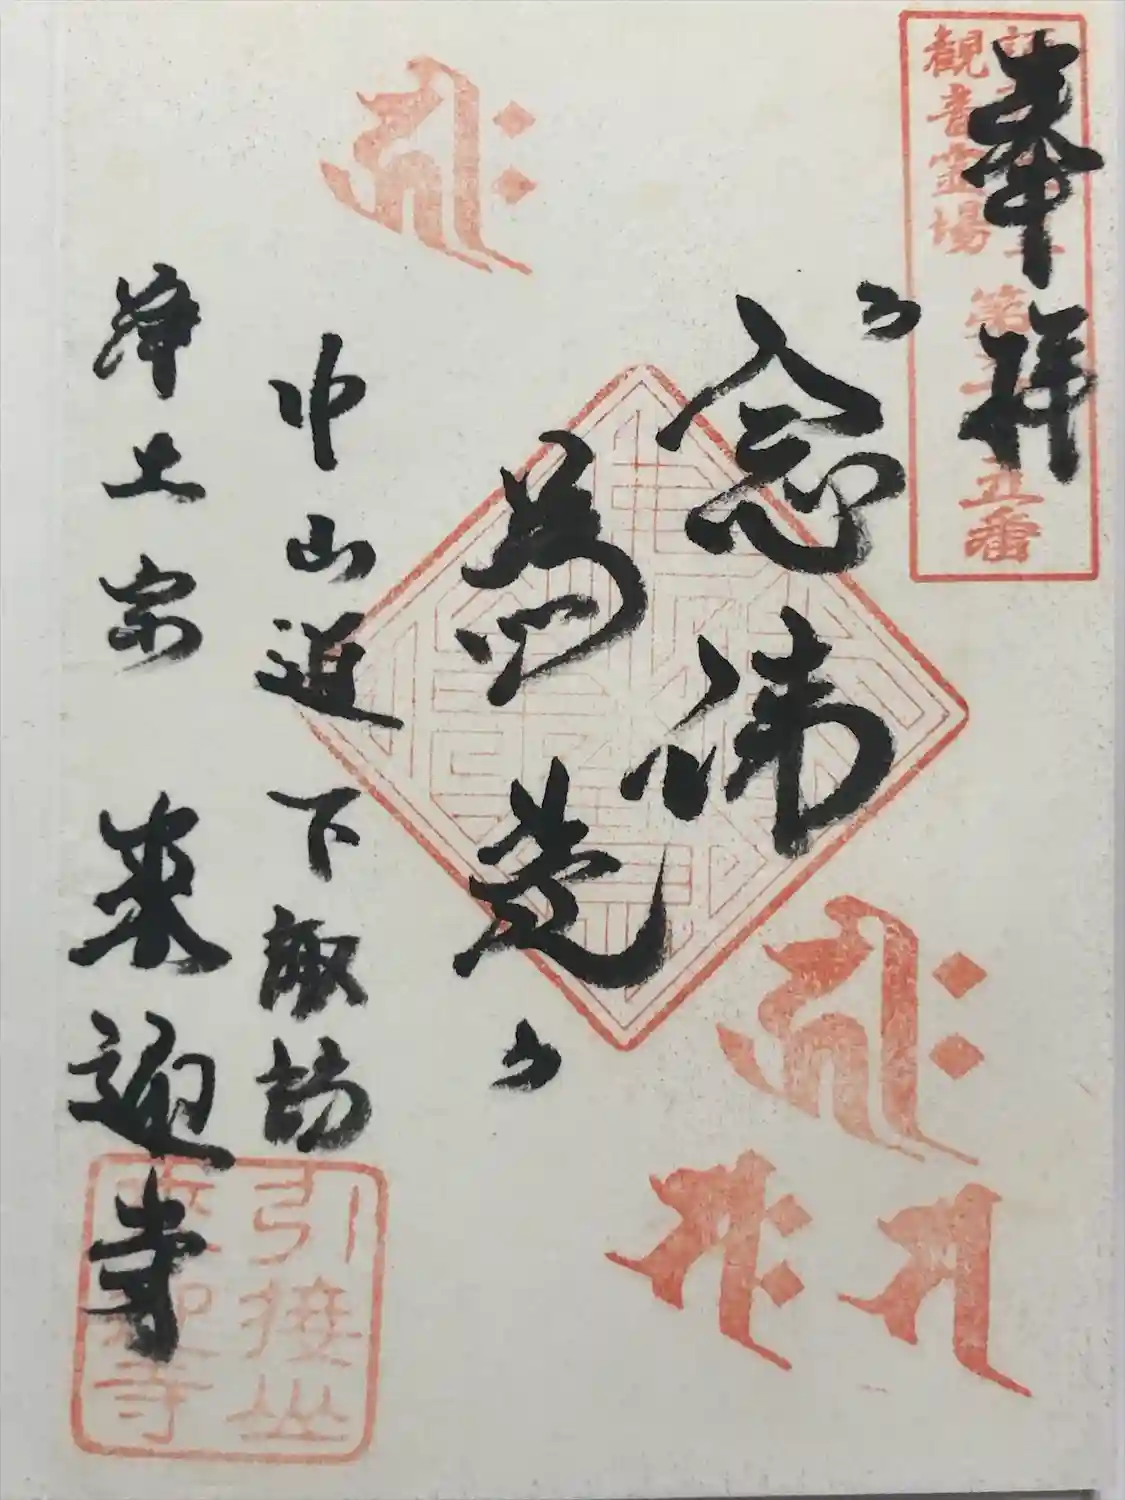 奉拝
観音霊場
第
五番
念佛
為先
中山道 下諏訪
浄土宗 来迎寺
引接山
来迎寺